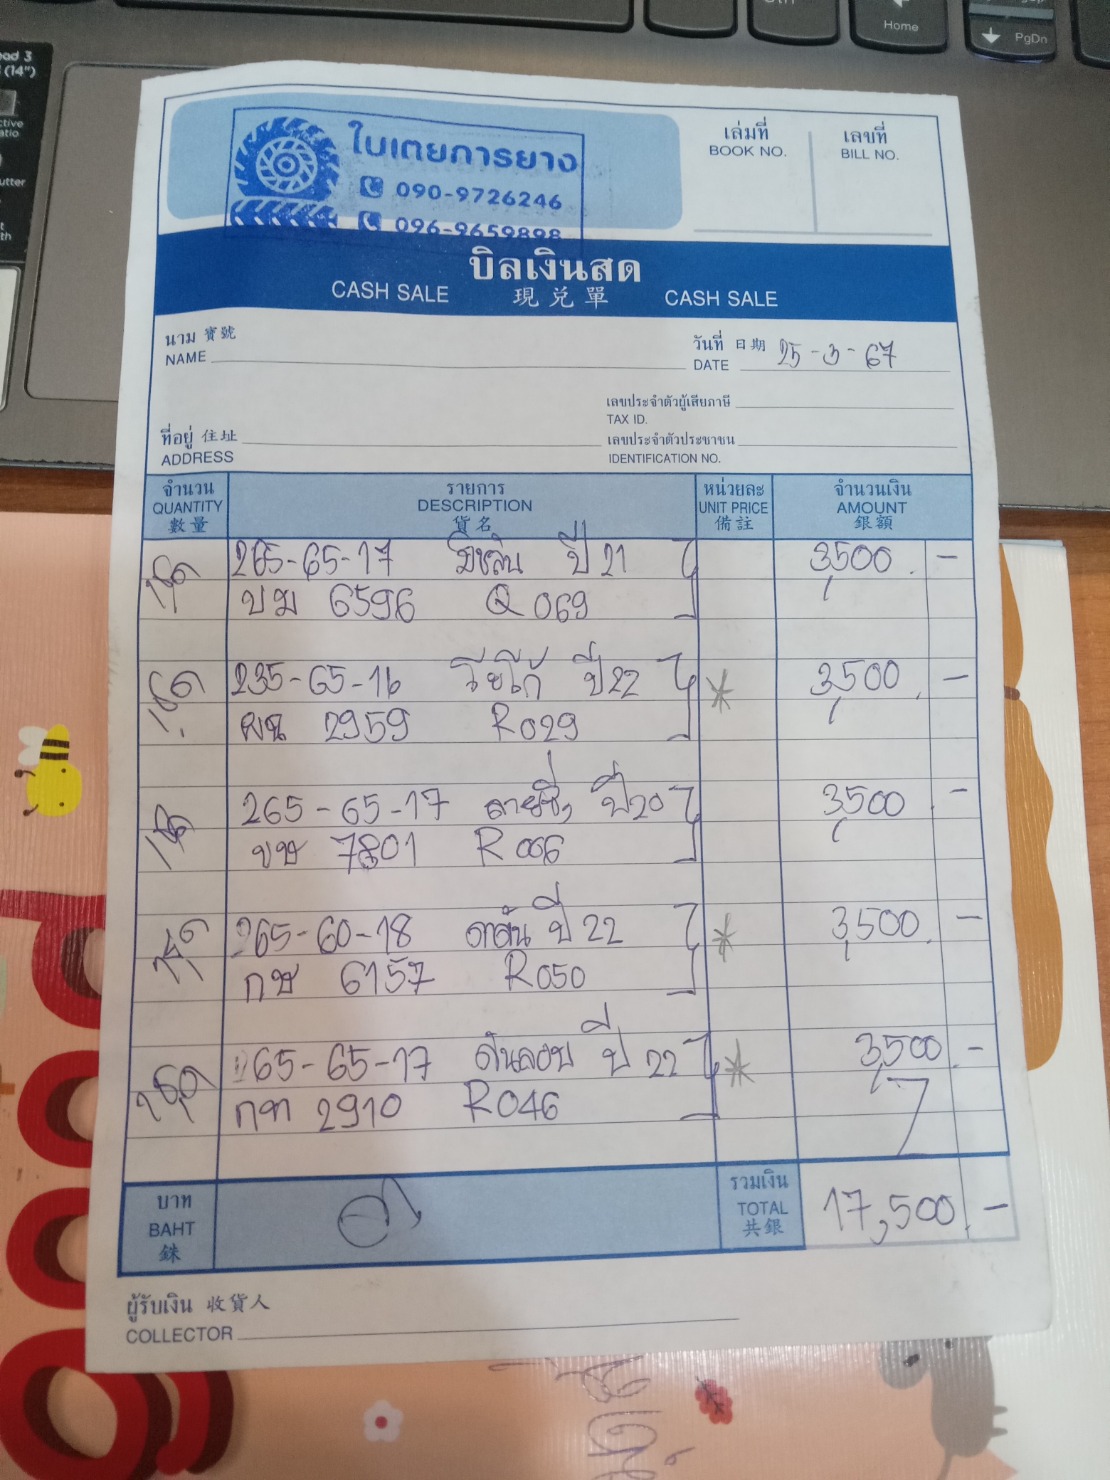 ead 3
(14")
Home
PgDn
ใบเตยการยาง
090-9726246
096-9659898
เล่มที่
BOOK NO.
เลขที่
BILL NO.
บิลเงินสด
CASH SALE 現兌單 CASH SALE
นาม 寶號
NAME
วันที่ 日期
DATE 25-3-67
เลขประจำตัวผู้เสียภาษี
TAX ID.
ที่อยู่ 住址
ADDRESS
เลขประจำตัวประชาชน
IDENTIFICATION NO.
จำนวน
QUANTITY
數量
รายการ
DESCRIPTION
貨名
หน่วยละ
UNIT PRICE
備註
จำนวนเงิน
AMOUNT
銀額
1ชุด 265-65-17 มิชลิน ปี 21 3,500.-
ขม 6596 Q069
1ชุด 235-65-16 วีซโก้ ปี 22 3,500.-
ผน 2959 R029
1ชุด 265-65-17 ปี 20 3,500.-
ขษ 7801 R006
1ชุด 265-60-18 ปี 22 3,500.-
กษ 6157 R050
1ชุด 265-65-17 ดันลอป ปี 22 3,500.-
กท 2910 R046
บาท
BAHT
銖
รวมเงิน
TOTAL
共銀
17,500.-
ผู้รับเงิน 收貨人
COLLECTOR